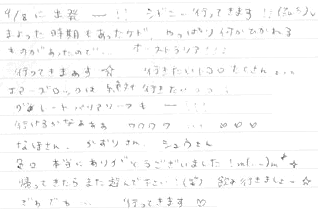 9/8に出発ー!! シドニー行ってきます!!
まよった時期もあったケド、やっぱり何かひかれる
ものがあったので... オーストラリア!!!
行ってきまぁす☆ 行きたいトコロたくさん...
エアーズロックは絶対行きたいっ!
グレートバリアリーフもー!!!
行けるかなぁぁぁ ワクワク ...♡♡♡
なほさん、かおりさん、シュウさん
毎日 本当にありがとうございました!m(_ _)m*☆
帰ってきたらまた遊んで下さい!飲み行きましょー☆
ではでは... 行ってきます♡